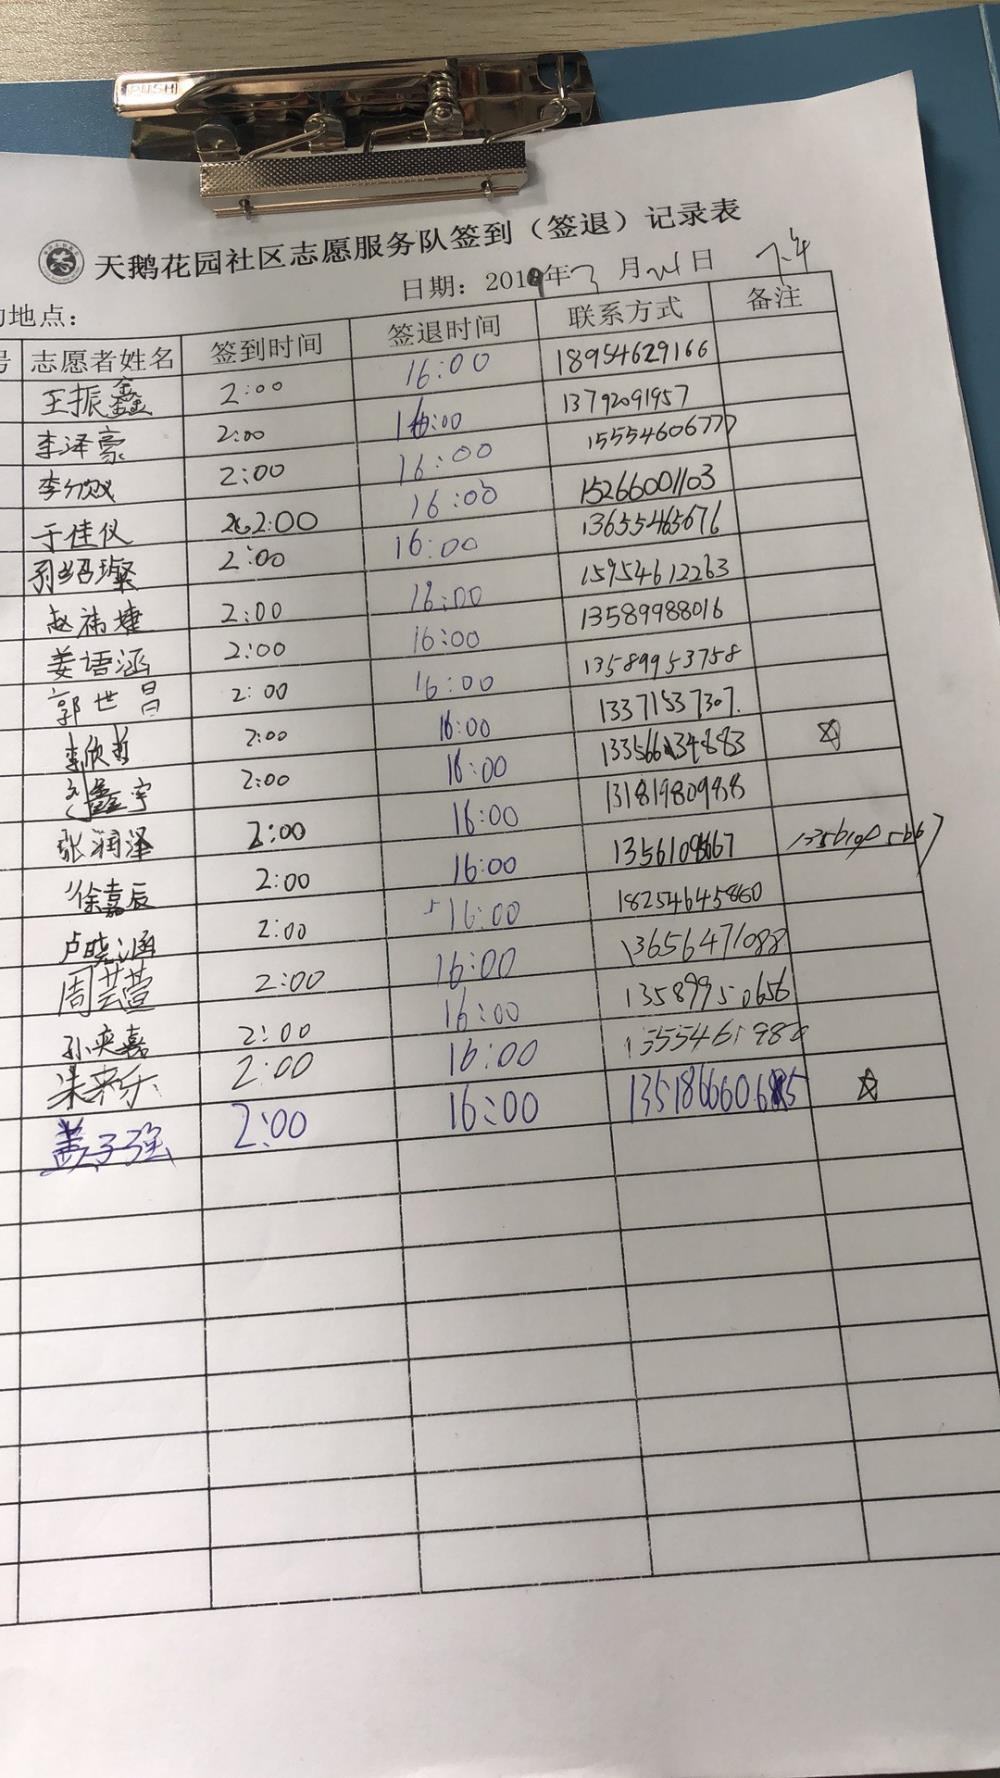 PUSH
天鹅花园社区志愿服务队签到（签退）记录表
日期：2019年3月21日 下午
地点：
号 志愿者姓名 签到时间 签退时间 联系方式 备注
王振鑫 2:00 16:00 18954629166
李泽豪 2:00 16:00 13792091957
李 2:00 16:00 15554606777
于佳仪 2:00 16:00 15266001103
孙绍璨 2:00 16:00 13655465676
赵祎婕 2:00 16:00 15954612263
姜语涵 2:00 16:00 13589988016
郭世昌 2:00 16:00 13589953758
李欣哲 2:00 16:00 13371537307.
鑫宇 2:00 16:00 ☆
张润泽 2:00 16:00 13181980988
徐嘉辰 2:00 16:00
卢晓涵 2:00 16:00 18254645860
周芸萱 2:00 16:00 13656471088
孙奕嘉 2:00 16:00 13589950656
朱 2:00 16:00
盖子强 2:00 16:00 ☆